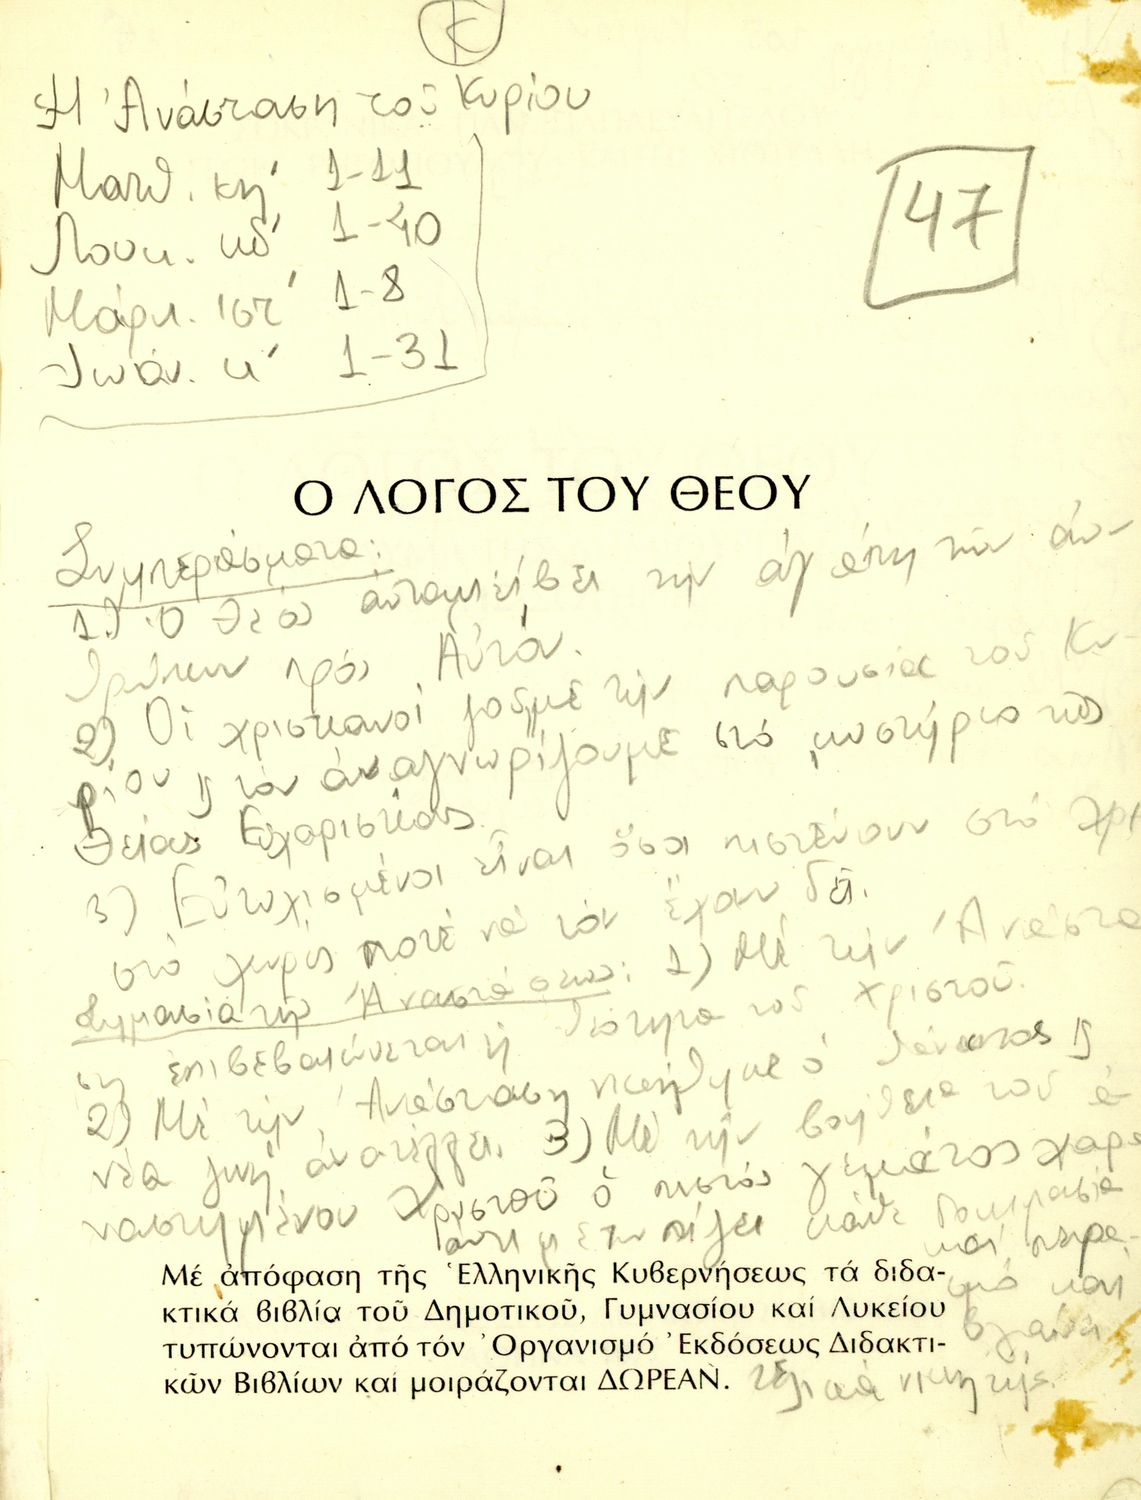 Κ
Ἡ Ἀνάσταση τοῦ Κυρίου
Ματθ. κη΄ 1-11
47
Λουκ. κδ΄ 1-40
Μάρκ. ιστ΄ 1-8
Ἰωάν. κ΄ 1-31
Ο ΛΟΓΟΣ ΤΟΥ ΘΕΟΥ
Συμπεράσματα:
1) Ὁ Θεός ἀνταμείβει τήν ἀγάπη τῶν ἀν-
θρώπων πρός Αὐτόν.
2) Οἱ χριστιανοί ζοῦμε τήν παρουσία τοῦ Κυ-
ρίου ἤ τόν ἀναγνωρίζουμε στό μυστήριο τῆς
Θείας Εὐχαριστίας.
3) Εὐτυχισμένοι εἶναι ὅσοι πιστεύουν στό Χρι
στό χωρίς ποτέ νά τόν ἔχουν δεῖ.
Σημασία τῆς Ἀναστάσεως: 1) Μέ τήν Ἀνάστα
ση ἐπιβεβαιώνεται ἡ θεότητα τοῦ Χριστοῦ.
2) Μέ τήν Ἀνάσταση νικήθηκε ὁ θάνατος ἤ
νέα ζωή ἀνατέλλει. 3) Μέ τήν βοήθεια τοῦ ἀ-
ναστημένου Χριστοῦ ὁ πιστός γεμάτος χαρά
ἀντιμετωπίζει κάθε δοκιμασία
καί πειρα-
σμό καί
βγαίνει
τελικά νικητής.
Μέ ἀπόφαση τῆς Ἑλληνικῆς Κυβερνήσεως τά διδα-
κτικά βιβλία τοῦ Δημοτικοῦ, Γυμνασίου καί Λυκείου
τυπώνονται ἀπό τόν Ὀργανισμό Ἐκδόσεως Διδακτι-
κῶν Βιβλίων καί μοιράζονται ΔΩΡΕΑΝ.